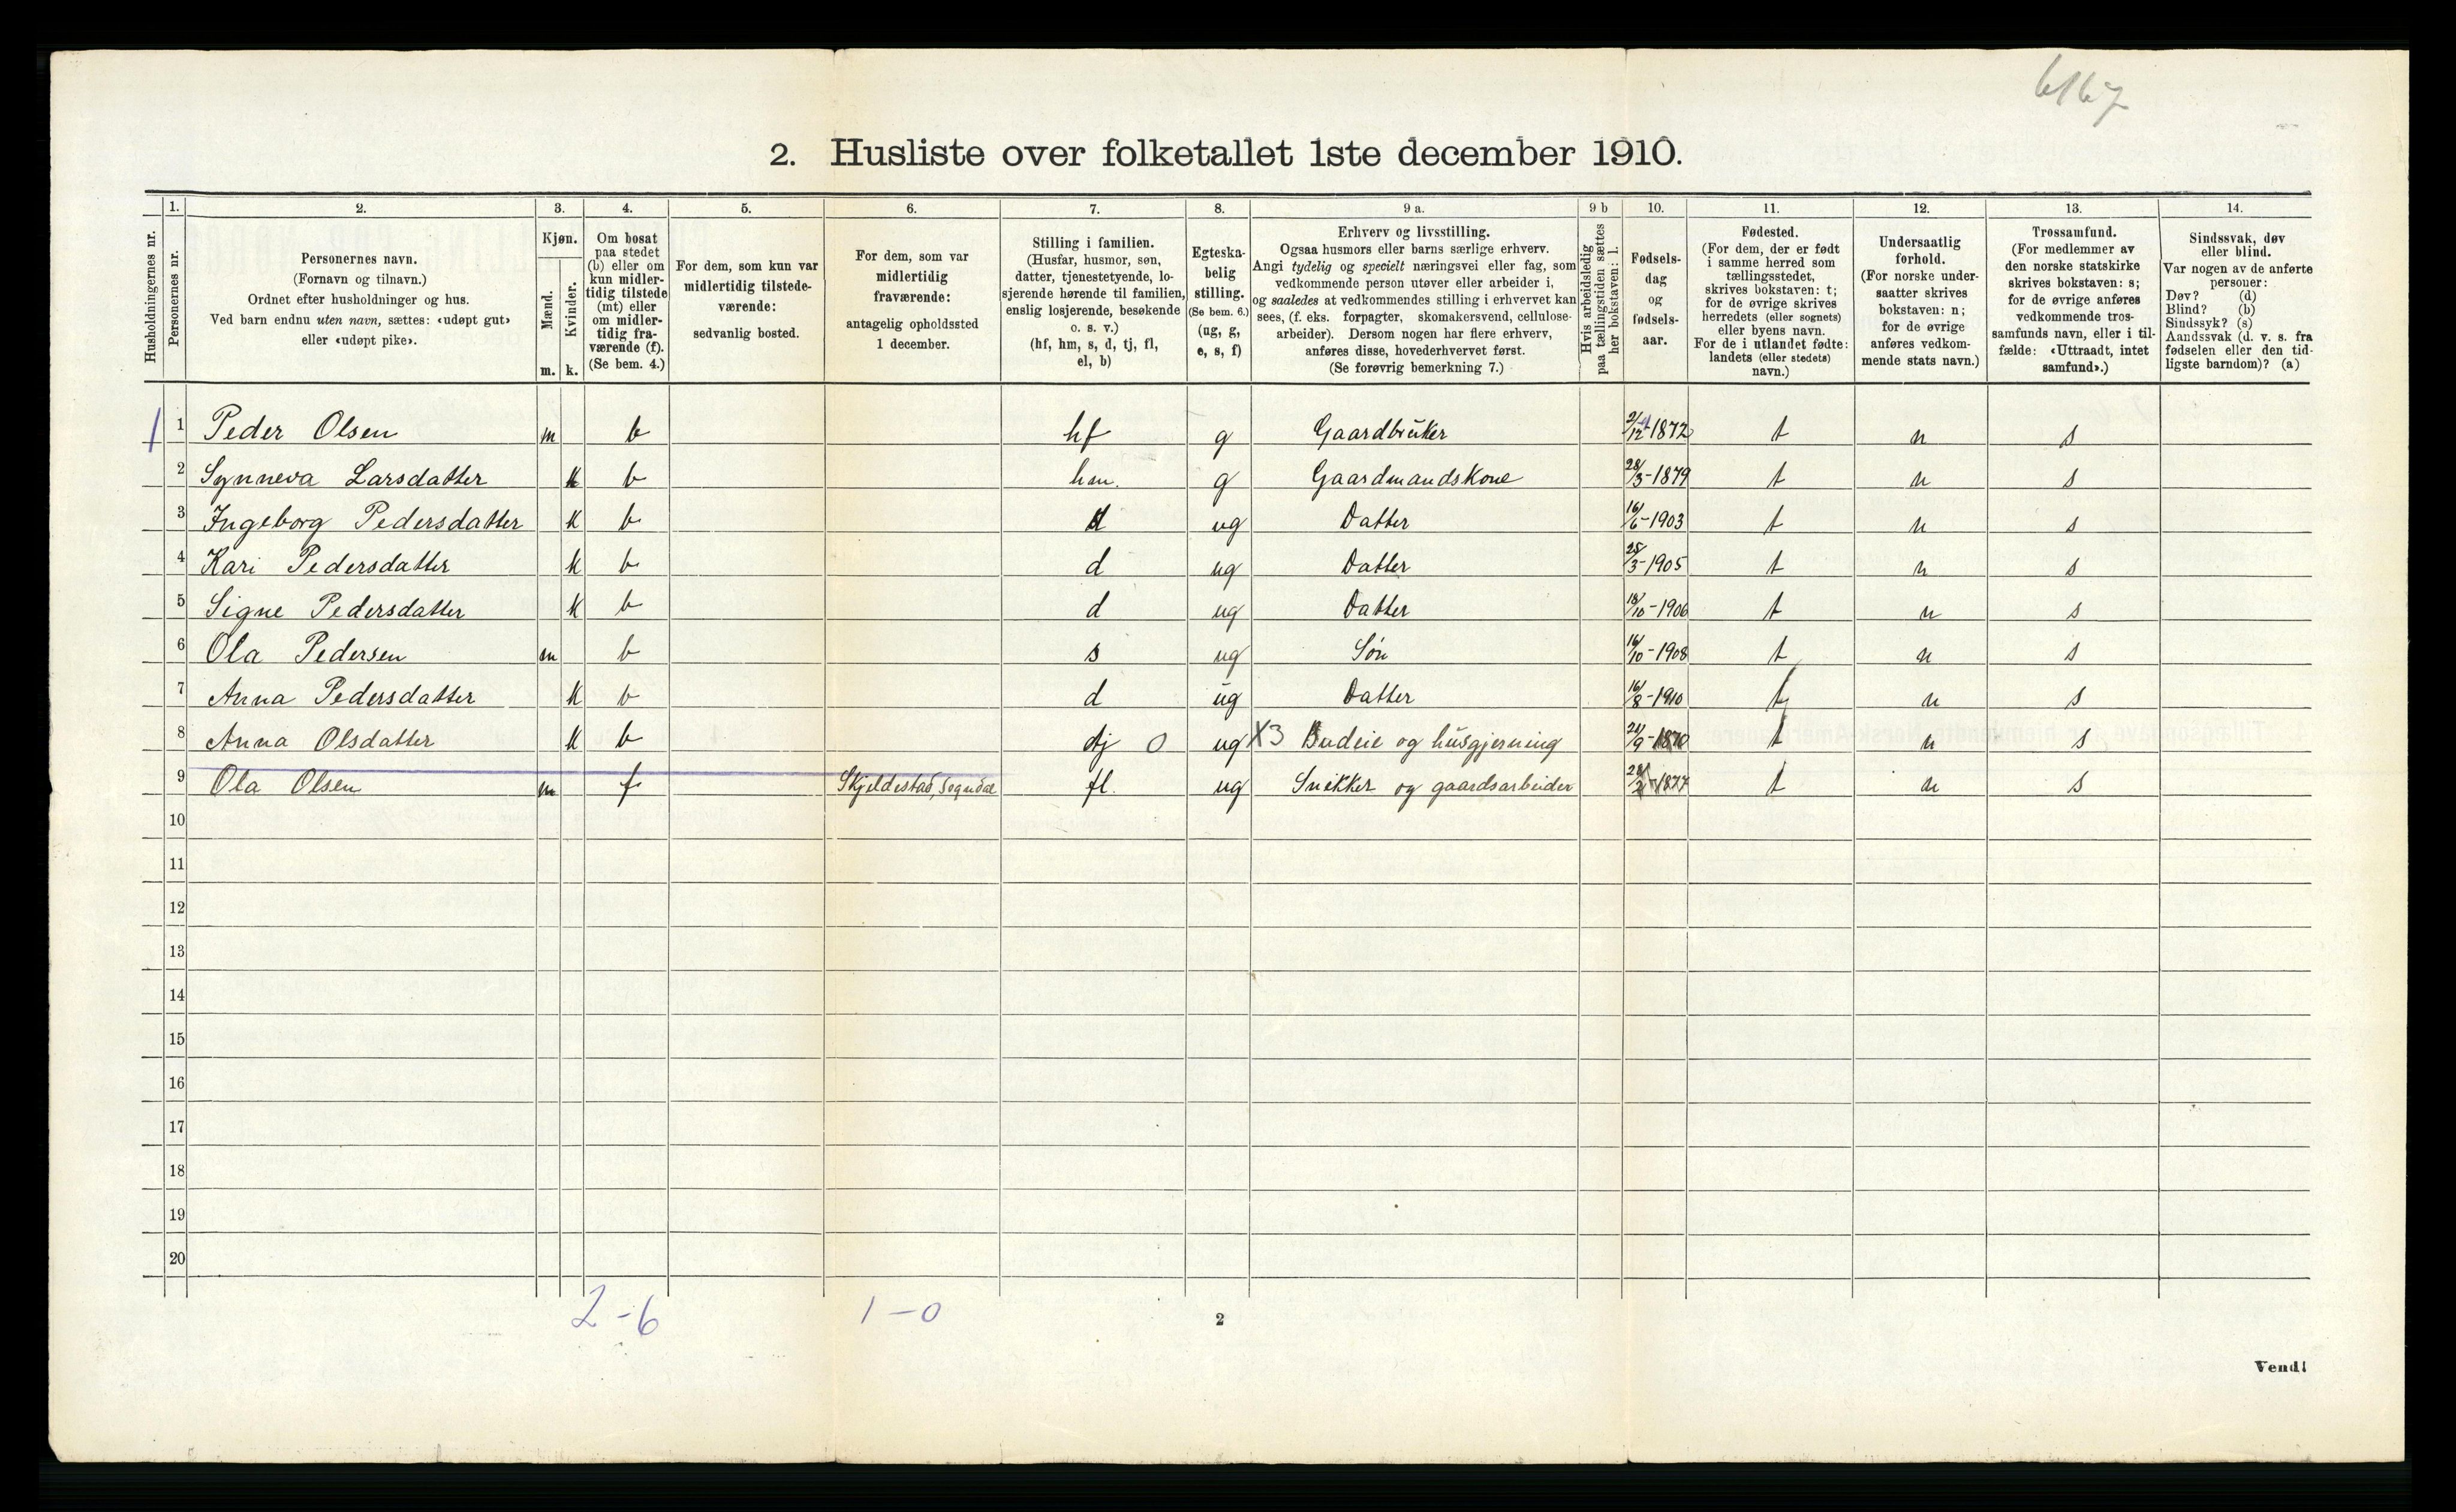 6167
2. Husliste over folketallet 1ste december 1910.
Husholdningernes nr.
1. Personernes nr.
2. Personernes navn. (Fornavn og tilnavn.) Ordnet efter husholdninger og hus. Ved barn endnu uten navn, sættes: «udøpt gut» eller «udøpt pike».
3. Kjøn. Mænd. m. Kvinder. k.
4. Om bosat paa stedet (b) eller om kun midlertidig tilstede (mt) eller om midlertidig fraværende (f). (Se bem. 4.)
5. For dem, som kun var midlertidig tilstedeværende: sedvanlig bosted.
6. For dem, som var midlertidig fraværende: antagelig opholdssted 1 december.
7. Stilling i familien. (Husfar, husmor, søn, datter, tjenestetyende, losjerende hørende til familien, enslig losjerende, besøkende o. s. v.) (hf, hm, s, d, tj, fl, el, b)
8. Egteskabelig stilling. (Se bem. 6.) (ug, g, e, s, f)
9 a. Erhverv og livsstilling. Ogsaa husmors eller barns særlige erhverv. Angi tydelig og specielt næringsvei eller fag, som vedkommende person utøver eller arbeider i, og saaledes at vedkommendes stilling i erhvervet kan sees, (f. eks. forpagter, skomakersvend, cellulosearbeider). Dersom nogen har flere erhverv, anføres disse, hovederhvervet først. (Se forøvrig bemerkning 7.)
9 b Hvis arbeidsledig paa tællingstiden sættes her bokstaven: l.
10. Fødselsdag og fødselsaar.
11. Fødested. (For dem, der er født i samme herred som tællingsstedet, skrives bokstaven: t; for de øvrige skrives herredets (eller sognets) eller byens navn. For de i utlandet fødte: landets (eller stedets) navn.)
12. Undersaatlig forhold. (For norske undersaatter skrives bokstaven: n; for de øvrige anføres vedkommende stats navn.)
13. Trossamfund. (For medlemmer av den norske statskirke skrives bokstaven: s; for de øvrige anføres vedkommende trossamfunds navn, eller i tilfælde: «Uttraadt, intet samfund».)
14. Sindssvak, døv eller blind. Var nogen av de anførte personer: Døv? (d) Blind? (b) Sindssyk? (s) Aandssvak (d. v. s. fra fødselen eller den tidligste barndom)? (a)
1 1 Peder Olsen m b hf g Gaardbruker 2/12-1872 t n s
2 Synneva Larsdatter k b hm. g Gaardmandskone 28/3-1879 t n s
3 Ingeborg Pedersdatter k b d ug Datter 16/6-1903 t n s
4 Kari Pedersdatter k b d ug Datter 25/3-1905 t n s
5 Signe Pedersdatter k b d ug Datter 18/10-1906 t n s
6 Ola Pedersen m b s ug Søn 16/10-1908 t n s
7 Anna Pedersdatter k b d ug Datter 16/8-1910 t n s
8 Anna Olsdatter k b tj 0 ug X3 Budeie og husgjerning 21/9-1870 t n s
9 Ola Olsen m f Skjeldestad, Sogndal fl. ug Snikker og gaardsarbeider 1877 t n s
10
11
12
13
14
15
16
17
18
19
20
2-6 1-0
2
Vend!